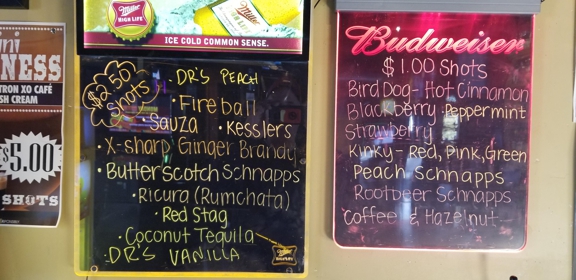 ni
NESS
TRON XO CAFÉ
SH CREAM
$5.00
SHOTS
Miller
HIGH LIFE
Miller
ICE COLD COMMON SENSE.
$2.50 shots
• DR'S PEACH
• Fireball
• Sauza • Kesslers
X-sharp Ginger Brandy
• Butterscotch Schnapps
Ricura (Rumchata)
• Red Stag
• Coconut Tequila
DR'S VANILLA
Budweiser
$1.00 Shots
Bird Dog - Hot Cinnamon
Blackberry Peppermint
Strawberry
Kinky - Red, Pink, Green
Peach Schnapps
Rootbeer Schnapps
Coffee & Hazelnut